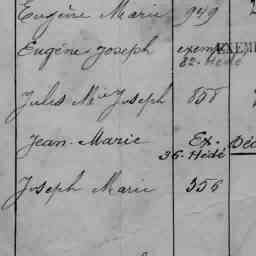 Eugène Marie 949
Eugène Joseph exem EXEM
82. Hédé
Jules Mie Joseph 858
Jean-Marie Ex. Déc
36. Hédé
Joseph Marie 356